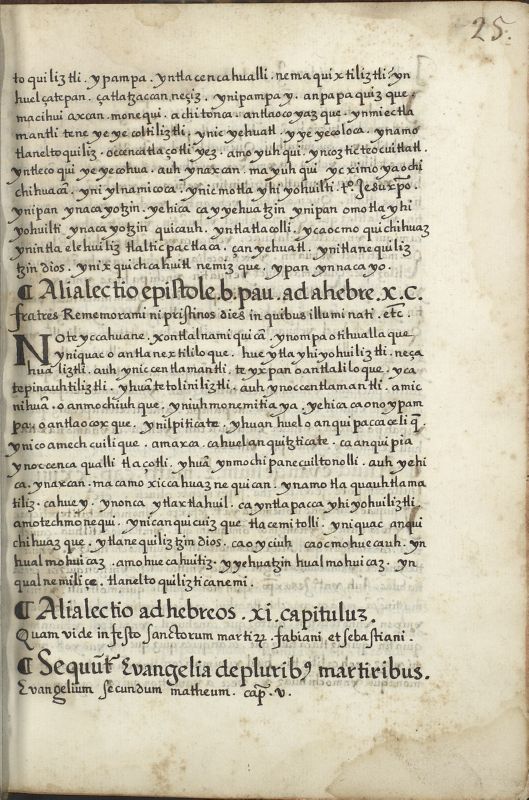 25.
to quiliztli. ypampa. yntlacencahualli. nemaquixtiliztli. yn
huel çatepan. çatlatzaccan neçiz. ynipampa y. anpapaquiz que.
macihui axcan. monequi. achitonca. antlaocoyaz que. ynmiectla
mantli teneyeyecoltiliztli. ynic yehuatl. yyeyecoloca. ynamo
tlaneltoquiliz. occencatlaçotli yez. amo yuhqui. yncoztic teocuitlatl.
yntleco qui yeyecohua. auh ynaxcan. mayuhqui yc ximoyaochi
chihuacā. yni ylnamicoca. ynic motlayhiyohuilti. tº. Jesu xp̄o.
ynipan ynacayotzin. yehica ca yyehuatzin ynipan omotlayhi
yohuilti ynacayotzin quicauh. yntlatlacolli. ycaocmo quichihuaz
ynintla elehuiliz tlalticpactlaca. çan yehuatl. ynitlanequiliz
tzin dios. ynixquichcahuitl nemiz que, ypan ynnacayo.
¶ Alia lectio epistole. b. pau. ad ahebre. x. C.
fratres Rememorami ni pristinos dies in quibus illuminati. etc̄.
Noteyccahuane. xontlalnamiquicā. ynompa otihualla que
yniquac oantlanextililoque. hueytlayhiyohuiliztli. neça
hualiztli. auh yniccentlamantli, teyxpan oantlaliloque. yca
tepinauhtiliztli. yhuā tetoliniliztli. auh ynoccentlamantli. amic
nihuā. oanmochiuhque. yniuhmonemitia ya. yehica caono ypam
pa, oantlaocoxque. ynilpiticate. yhuan huelo anquipaccaceliq̄.
ynicoamechcuilique. amaxca. cahuelanquitzticate. ca anquipia
ynoccenca qualli tlaçotli. yhuā ynmochipa necuiltonolli. auh yehi
ca. ynaxcan. macamo xiccahuaz nequican. ynamotlaquauhtlama
tiliz. cahuey. ynonca ytlaxtlahuil. ca yntlapaccayhiyohuiliztli,
amotechmonequi. ynicanquicuiz que tlacemitolli. yniquac anqui
chihuaz que. ytlanequiliztzin dios. caoyciuh caocmohuecauh. yn
hualmohuicaz. amohuecahuitiz. yyehuatzin hualmohuicaz. yn
qualnemiliçe. tlaneltoquiliztica nemi.
¶ Alia lectio ad hebreos. xi. capituluz.
Quam vide in festo sanctorum martiꝝ. fabiani et sebastiani.
¶ Sequūt́ Evangelia de pluribꝰ martiribus.
Evangelium secundum matheum. cap̄. v.